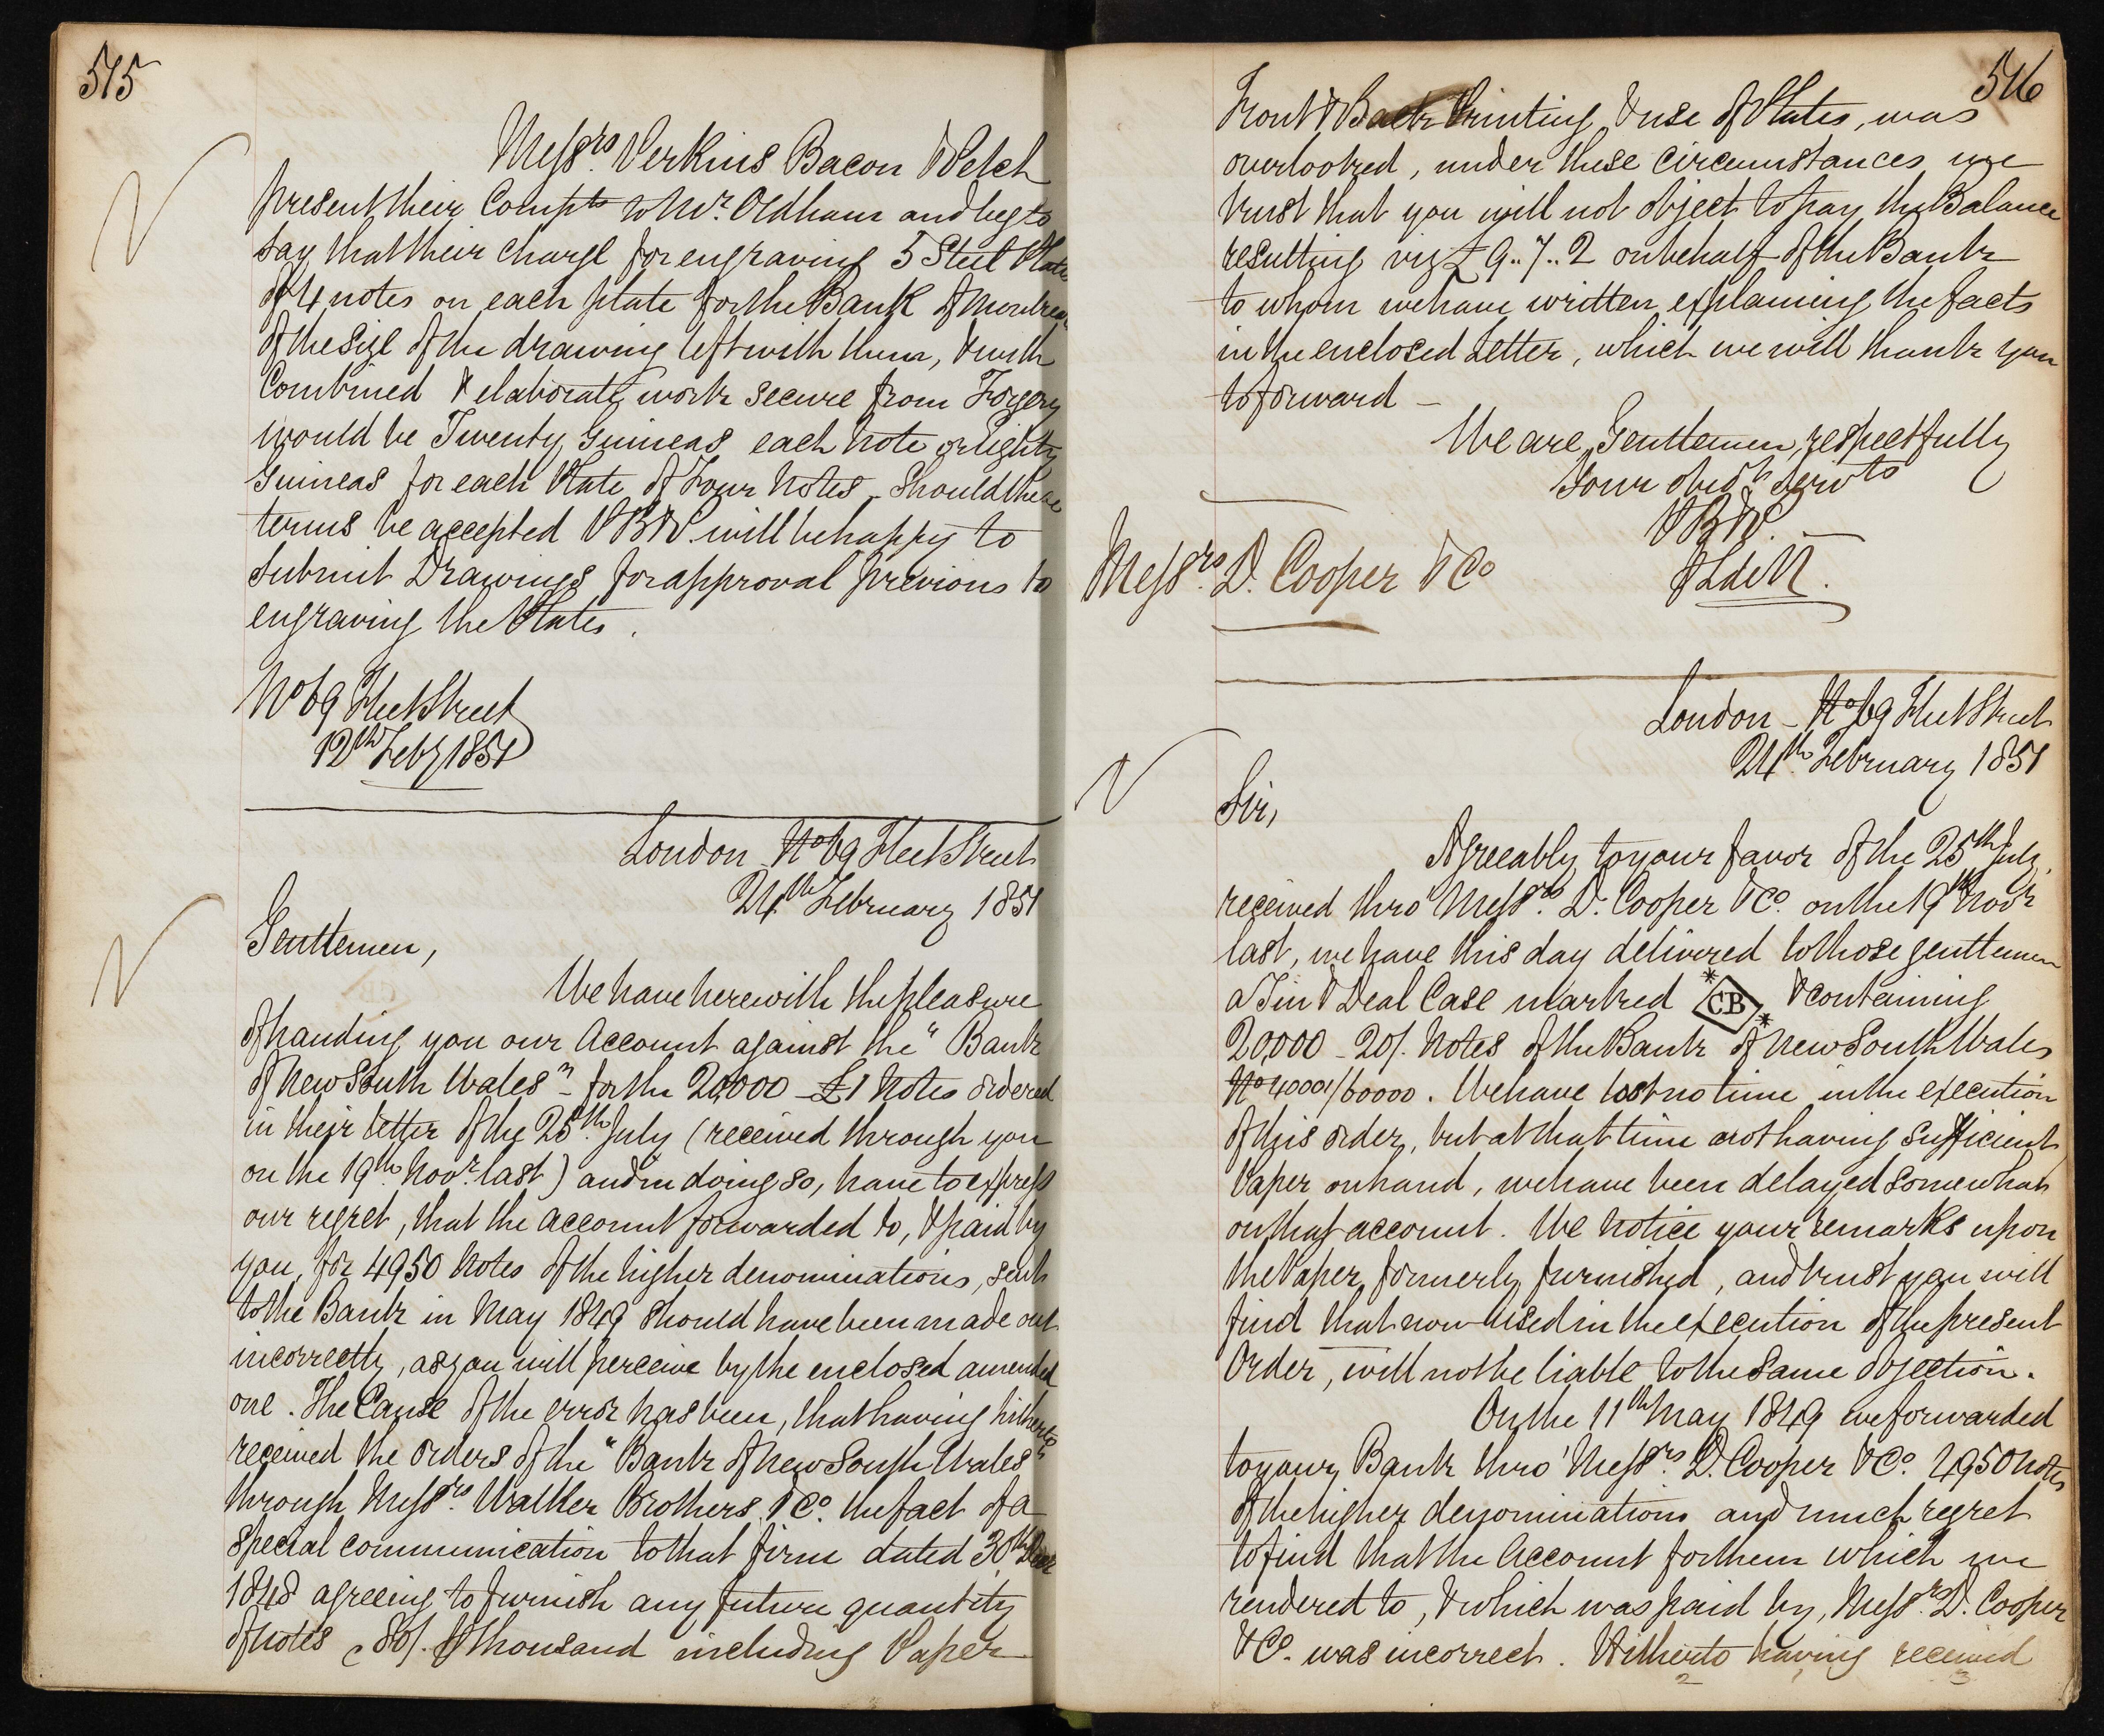 515
Messrs. Perkins Bacon & Petch
present their Compts to Mr. Oldham and beg to
say that their charge for engraving 5 Steel Plates
of 4 notes on each plate for the Bank of Montreal
of the size of the drawing left with them, & with
Combined & elaborate work secure from Forgery
would be Twenty Guineas each note or Eighty
Guineas for each Plate of Four Notes. Should these
terms be accepted P B & P. will be happy to
submit Drawings for approval previous to
engraving the Plates.
No 69 Fleet Street
12th Feby 1851
London No 69 Fleet Street
24th February 1851
Gentlemen,
We have herewith the pleasure
of handing you our Account against the "Bank
of New South Wales" - for the 20,000 - £1 Notes ordered
in their letter of the 25th. July (received through you
on the 19th. Novr. last) and in doing so, have to express
our regret, that the account forwarded to, & paid by
you, for 4950 Notes of the higher denominations, sent
to the Bank in May 1849 should have been made out
incorrectly, as you will perceive by the enclosed amended
one. The Cause of the error has been, that having hitherto
received the orders of the "Bank of New South Wales"
through Messrs. Walker Brothers & Co. the fact of a
special communication to that firm dated 30th Decr
1848 agreeing to furnish any future quantity
of notes @ 80/. P thousand including Paper
516
Front & Back Printing & use of Plates, was
overlooked, under these circumstances we
trust that you will not object to pay the Balance
resulting viz £9..7..2 on behalf of the Bank
to whom we have written explaining the facts
in the enclosed Letter, which we will thank you
to forward —
We are, Gentlemen, respectfully
Your obedt. Servts
P B & P.
Messrs. D. Cooper & Co
London - No 69 Fleet Street
24th. February 1851
Sir,
Agreeably to your favor of the 25th July,
received thro' Messrs. D. Cooper & Co. on the 19th Novr
last, we have this day delivered to those gentlemen
a Tin & Deal Case marked * CB * & containing
20,000 - 20/. Notes of the Bank of New South Wales
No 40001/60000. We have lost no time in the execution
of this order, but at that time not having sufficient
Paper on hand, we have been delayed somewhat
on that account. We notice your remarks upon
the Paper formerly furnished, and trust you will
find that now used in the execution of the present
Order, will not be liable to the same objection.
On the 11th May 1849 we forwarded
to your Bank thro' Messrs. D. Cooper & Co. 4950 Notes
of the higher denominations and much regret
to find that the Account for them which we
rendered to, & which was paid by, Messrs. D. Cooper
& Co. was incorrect. Hitherto having received